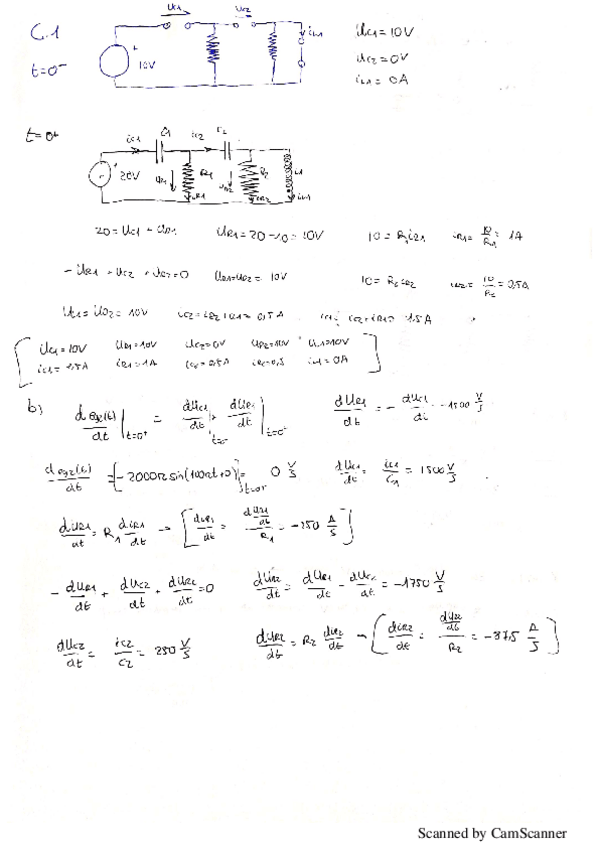 C.1
t=0⁻
uc1
uc2
iL1
10V
uc1 = 10V
uc2 = 0V
iL1 = 0A
t=0⁺
ic1 C1 ic2 C2
20V uR1 R1 iR1 uR2 R2 iR2 L1 iL1
20 = uc1 + uR1 uR1 = 20-10 = 10V 10 = R1 iR1 iR1 = 10/R1 = 1A
-uR1 + uc2 + uR2 = 0 uR1 = uR2 = 10V 10 = R2 iR2 iR2 = 10/R2 = 0,5A
uL1 = uR2 = 10V ic2 = iR2 + iL1 = 0,5A ic1 = ic2 + iR1 = 1.5A
uc1 = 10V uR1 = 10V uc2 = 0V uR2 = 10V uL1 = 10V
ic1 = 1,5A iR1 = 1A ic2 = 0,5A iR2 = 0,5 iL1 = 0A
b) d eg2(t)/dt |t=0⁺ = duc1/dt + duR1/dt |t=0⁺ duR1/dt = - duc1/dt = -1500 V/S
d eg2(t)/dt = [-2000π sin(100πt+0)] t=0⁺ = 0 V/S duc1/dt = ic1/C1 = 1500 V/S
duR1/dt = R1 diR1/dt → [diR1/dt = duR1/dt / R1 = -150 A/S]
- duR1/dt + duc2/dt + duR2/dt = 0 duR2/dt = duR1/dt - duc2/dt = -1750 V/S
duc2/dt = ic2/C2 = 250 V/S duR2/dt = R2 diR2/dt → [diR2/dt = duR2/dt / R2 = -87,5 A/S]
Scanned by CamScanner